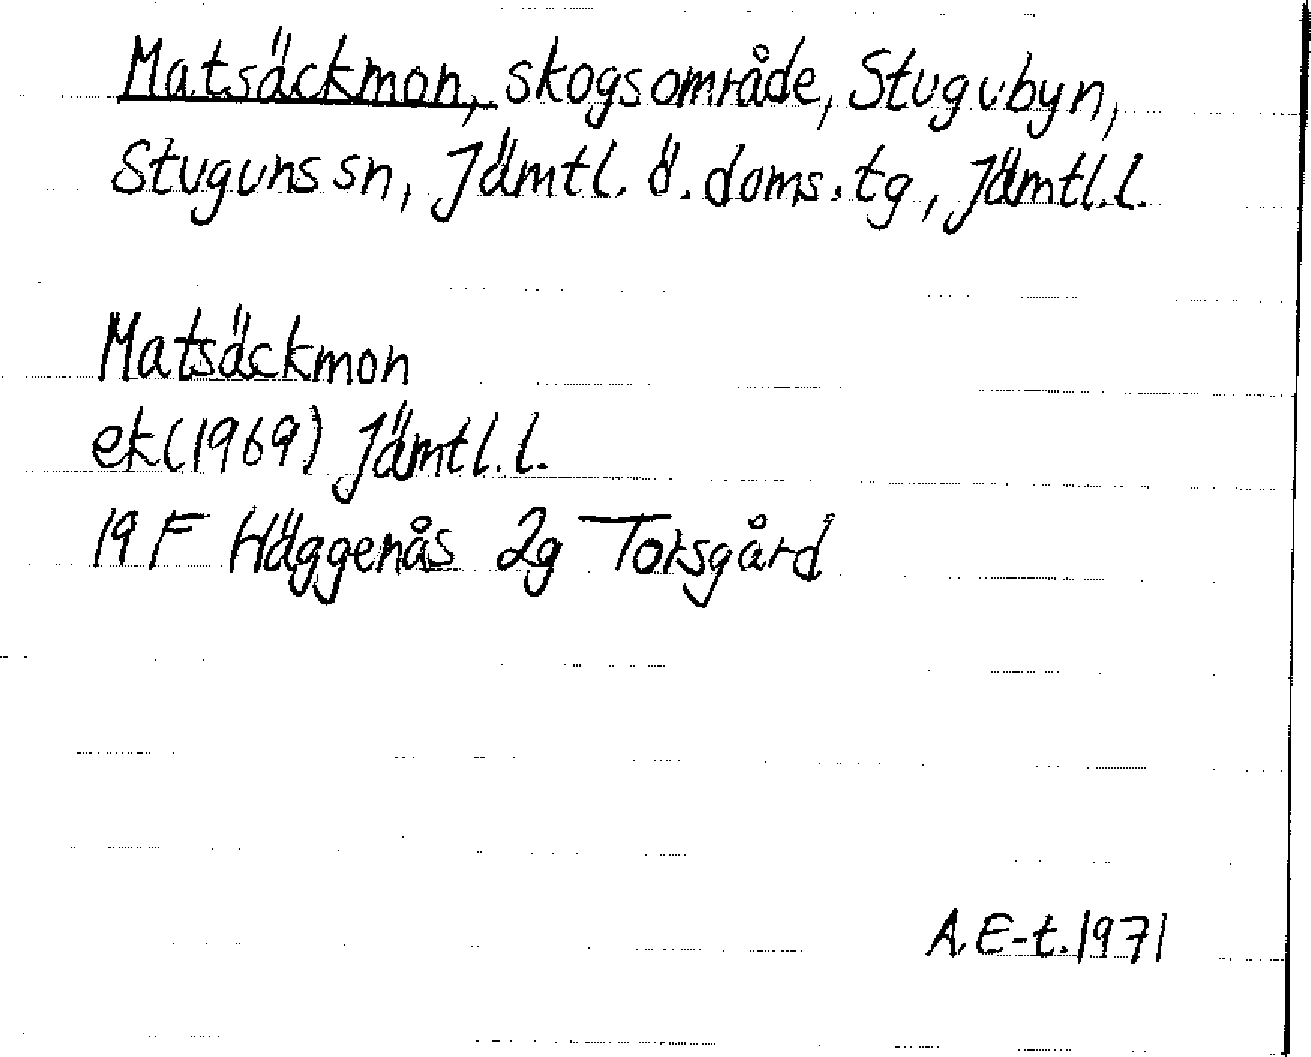 Matsäckmon, skogsområde, Stugubyn,
Stuguns sn, Jämtl. ö. doms. tg, Jämtl.l.
Matsäckmon
ek(1969) Jämtl.l.
19 F Häggenås 2g Torsgård
A.E-t.1971